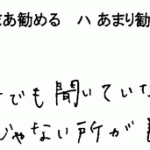 あ勧める　ハ あまり勧
でも聞いてい
じゃない所が